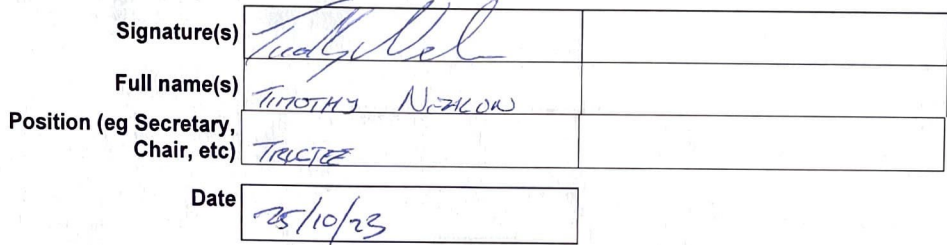 Signature(s)
Full name(s) TIMOTHY
Position (eg Secretary,
Chair, etc) TRUSTEE
Date 25/10/23